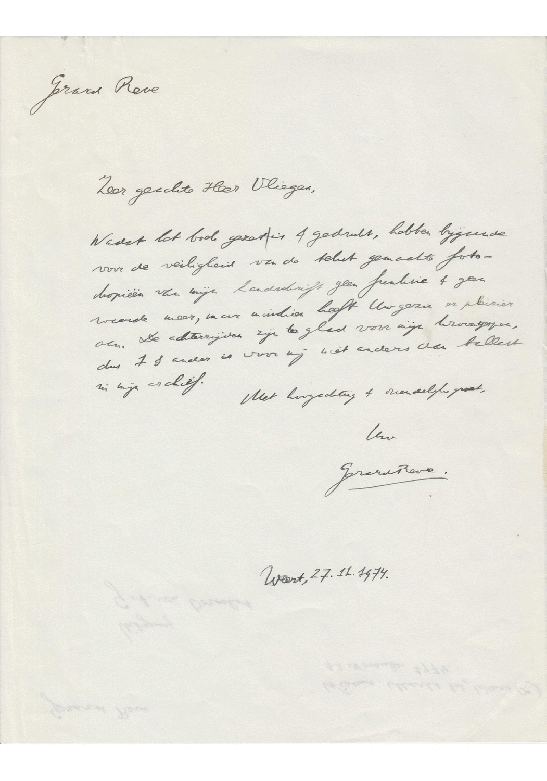 Gerard Reve
Zeer geachte Heer Vliegen,
Nadat het boek gezet is & gedrukt, hebben bijgaande
voor de veiligheid van de tekst gemaakte foto-
kopieën van mijn handschrift geen funktie & geen
waarde meer, maar misschien heeft Uw gezin er plezier
aan. De achterzijden zijn te glad voor mijn kroontjespen,
dus 1 & ander is voor mij niet anders dan ballast
in mijn archief.
Met hoogachting & vriendelijke groet,
Uw
Gerard Reve.
Weert, 27.11.1974.
Gerard Reve